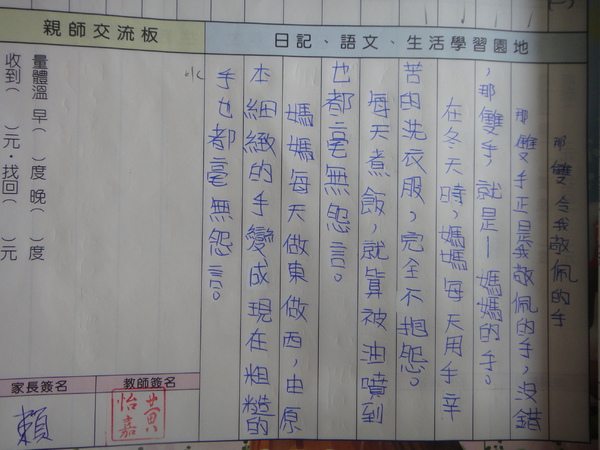 日記、語文、生活學習園地
那雙令我敬佩的手
那雙手正是我敬佩的手，沒錯
，那雙手，就是—媽媽的手。
在冬天時，媽媽每天用手辛
苦的洗衣服，完全不抱怨。
每天煮飯，就算被油噴到
也都毫無怨言。
媽媽每天做東做西，由原
本細緻的手變成現在粗糙的
手也都毫無怨言。
水
親師交流板
量體溫 早（　）度 晚（　）度
收到（　）元・找回（　）元
教師簽名
黃怡嘉
家長簽名
賴